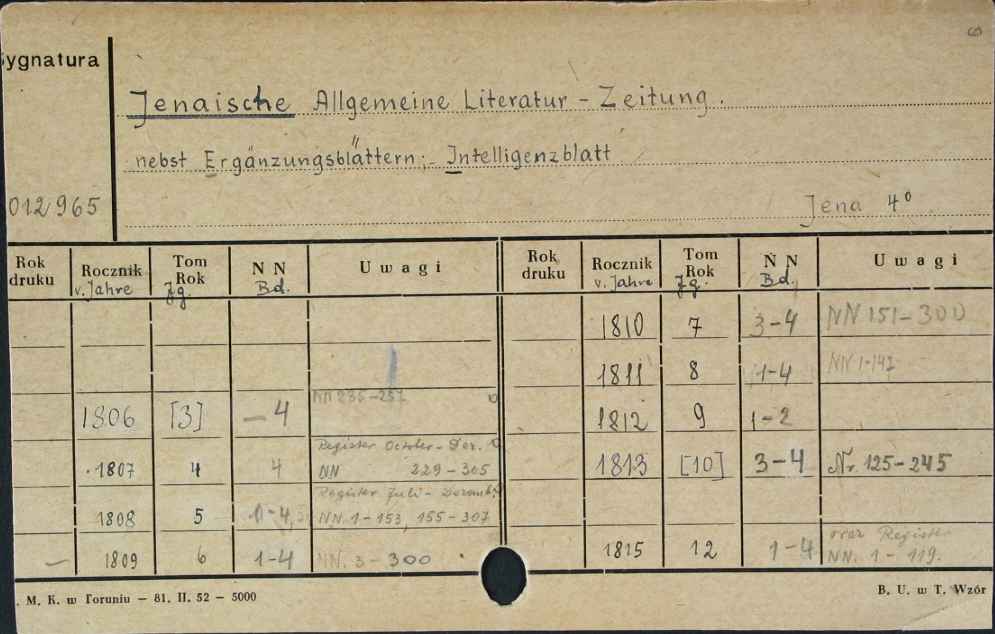 Sygnatura
Jenaische Allgemeine Literatur - Zeitung.
nebst Ergänzungsblättern; Intelligenzblatt
012965
Jena 4°
Rok druku Rocznik v. Jahre Tom Rok Jg. N N Bd. Uwagi
1806 [3] - 4 NN 236-257
1807 4 4 Register October - Dez.
NN 229-305
1808 5 1-4 Register Juli - Dezemb.
NN 1-153, 155-307
1809 6 1-4 NN. 3-300
Rok druku Rocznik v. Jahre Tom Rok Jg. N N Bd. Uwagi
1810 7 3-4 NN 151-300
1811 8 1-4 NN 1-142
1812 9 1-2
1813 [10] 3-4 Nr. 125-245
1815 12 1-4 oraz Register
NN. 1-119.
. M. K. w Toruniu — 81. II. 52 — 5000
B. U. w T. Wzór